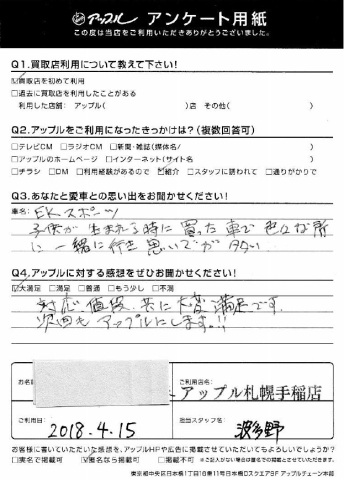 アップル アンケート用紙
この度は当店をご利用いただきありがとうございました。
Q1.買取店利用について教えて下さい!
☑買取店を初めて利用
□過去に買取店を利用したことがある
利用した店舗: アップル( )店 その他( )
Q2.アップルをご利用になったきっかけは?(複数回答可)
□テレビCM □ラジオCM □新聞・雑誌(媒体名/ )
□アップルのホームページ □インターネット(サイト名 )
□チラシ □DM □利用経験があるので ☑紹介 □スタッフに誘われて □通りがかりで
Q3.あなたと愛車との思い出をお聞かせください!
車名: EKスポーツ
子供が生まれる時に買った車で色々な所
に一緒に行き思いでが多い
Q4.アップルに対する感想をぜひお聞かせください!
☑大満足 □満足 □普通 □もう少し □不満
対応、値段、共に大変満足です。
次回もアップルにします。!!
お名
ご利用店名:
アップル札幌手稲店
ご利用日:
2018.4.15
担当スタッフ名:
波多野
お客様に書いていただいた感想を、アップルHPや広告に掲載させていただいてもよろしいでしょうか?
□実名で掲載可 ☑匿名なら掲載可 □掲載不可 ※ご記入がない場合は匿名での掲載とさせていただきます。
東京都中央区日本橋1丁目19番11号日本橋DスクエアSF アップルチェーン本部